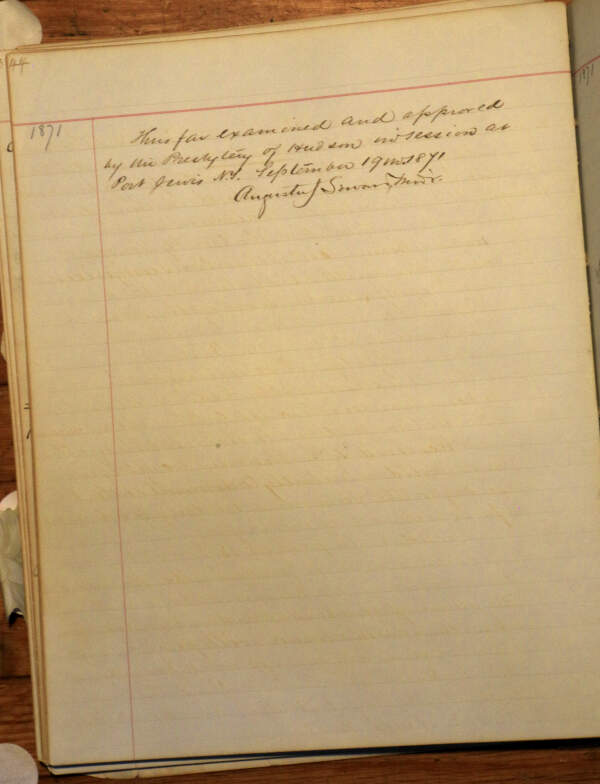 44
1871
Thus far examined and approved
by the Presbytery of Hudson in session at
Port Jervis N.Y. September 19th 1871
Augustus Seward Modr.
1871